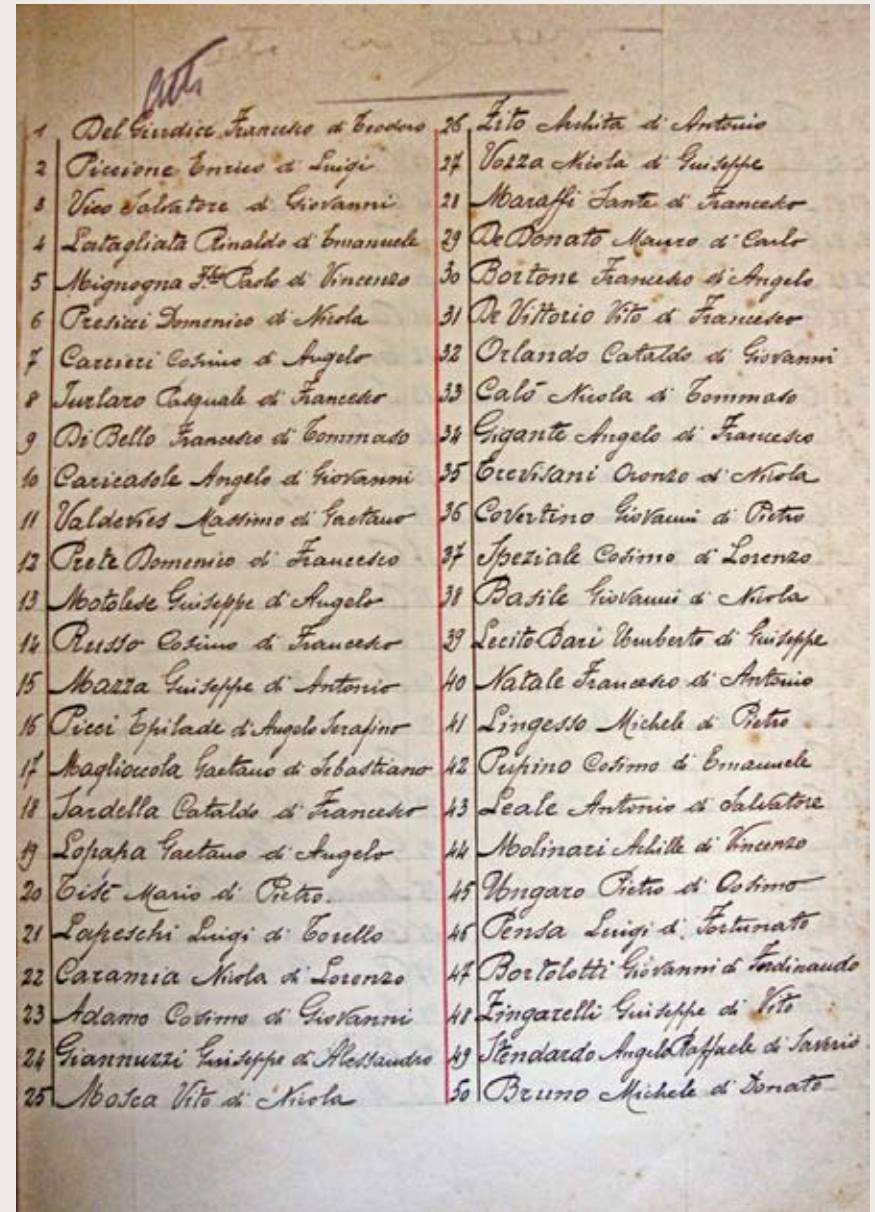 1 Del Giudice Francesco di Teodoro
2 Piccione Enrico di Luigi
3 Vico Salvatore di Giovanni
4 Latagliata Rinaldo di Emanuele
5 Mignogna F.sco Paolo di Vincenzo
6 Presicci Domenico di Nicola
7 Carrieri Cosimo di Angelo
8 Turlaro Pasquale di Francesco
9 Di Bello Francesco di Tommaso
10 Caricasole Angelo di Giovanni
11 Valdevies Massimo di Gaetano
12 Prete Domenico di Francesco
13 Motolese Giuseppe d'Angelo
14 Russo Cosimo di Francesco
15 Mazza Giuseppe di Antonio
16 Picci Epilade d'Angelo Serafino
17 Magliocola Gaetano di Sebastiano
18 Sardella Cataldo di Francesco
19 Lopapa Gaetano di Angelo
20 Mario di Pietro.
21 Lapeschi Luigi di Torello
22 Caramia Nicola di Lorenzo
23 Adamo Cosimo di Giovanni
24 Giannuzzi Giuseppe di Alessandro
25 Mosca Vito di Nicola
26 Zito Archita di Antonio
27 Vozza Nicola di Giuseppe
28 Maraffi Sante di Francesco
29 De Donato Mauro di Carlo
30 Bortone Francesco di Angelo
31 De Vittorio Vito di Francesco
32 Orlando Cataldo di Giovanni
33 Calò Nicola di Tommaso
34 Gigante Angelo di Francesco
35 Trevisani Oronzo di Nicola
36 Covertino Giovanni di Pietro
37 Speziale Cosimo di Lorenzo
38 Basile Giovanni di Nicola
39 Lecito Bari Umberto di Giuseppe
40 Natale Francesco di Antonio
41 Lingesso Michele di Pietro
42 Pupino Cosimo di Emanuele
43 Leale Antonio di Salvatore
44 Molinari Achille di Vincenzo
45 Ungaro Pietro di Cosimo
46 Pensa Luigi di Fortunato
47 Bortolotti Giovanni di Ferdinando
48 Zingarelli Giuseppe di Vito
49 Stendardo Angelo Raffaele di Saverio
50 Bruno Michele di Donato